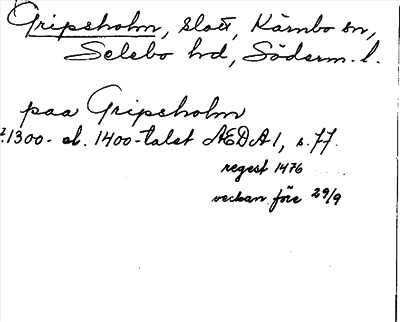 Gripsholm, slott, Kärnbo sn,
Selebo hd, Söderm. l.
paa Gripsholm
1300- el. 1400-talet ÆDA 1, s. 77
regest 1476
veckan före 29/9